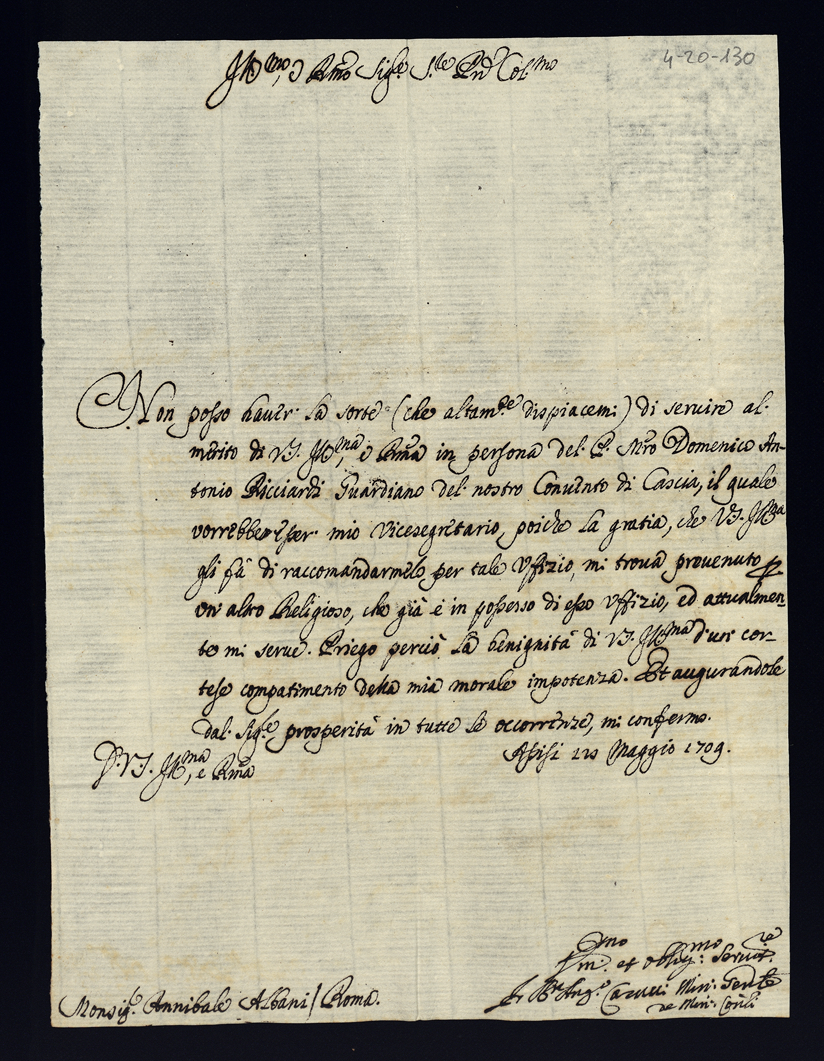 4-20-130
Ill.mo, e R.mo Sig.e S.re P.rõn Col.mo
Non posso haver la sorte (che altam.te dispiacemi) di servire al
merito di V.S. Ill.ma, e R.ma in persona del P. Mrõ Domenico An-
tonio Ricciardi Guardiano del nostro Convento di Cascia, il quale
vorrebbe esser mio Vicesegretario, poiche la gratia, che V.S. Ill.ma
gli fà di raccomandarmelo per tale Uffizio, mi trova prevenuto p
un altro Religioso, che già è in possesso di esso Uffizio, ed attualmen-
te mi serve. Priego perciò la benignità di V.S. Ill.ma d'un cor-
tese compatimento della mia morale impotenza. Et augurandole
dal Sig.re prosperità in tutte le occorrenze, mi confermo.
D. V.S. Ill.ma, e R.ma Assisi Maggio 1709.
mo mo re
et Oblig. Servit.
Fr. B. Ang.o Carucci Min. Gen.le
de Min. Con.li
Monsig.r Annibale Albani / Roma.